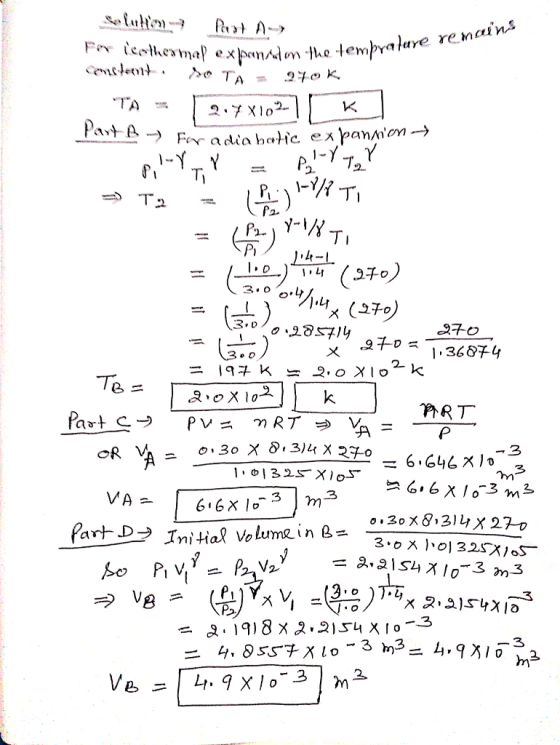 Solution → Part A →
For isothermal expansion the temprature remains
constant. So TA = 270K
TA = 2.7X10² K
Part B → For adiabatic expansion →
P₁^1-γ T₁^γ = P₂^1-γ T₂^γ
⇒ T2 = (P₁/P₂)^1-γ/γ T₁
= (P₂/P₁)^γ-1/γ T₁
= (1.0/3.0)^1.4-1/1.4 (270)
= (1/3.0)^0.4/1.4 x (270)
= (1/3.0)^0.285714 x 270 = 270/1.36874
= 197 K = 2.0 X10² K
TB = 2.0X10² k
Part C → PV = nRT ⇒ VA = nRT/P
OR VA = 0.30 X 8.314 X 270/1.01325 X10⁵ = 6.646 X10⁻³ m³
= 6.6 X 10⁻³ m³
VA = 6.6X 10⁻³ m³
Part D → Initial Volume in B = 0.30X8.314X270/3.0X1.01325X10⁵
= 2.2154 X10⁻³ m³
So P₁V₁^γ = P₂V₂^γ
⇒ VB = (P₁/P₂)^1/γ X V₁ = (3.0/1.0)^1/1.4 X 2.2154X10⁻³
= 2.1918 X 2.2154 X10⁻³
= 4.8557 X10⁻³ m³ = 4.9 X10⁻³ m³
VB = 4.9 X 10⁻³ m³